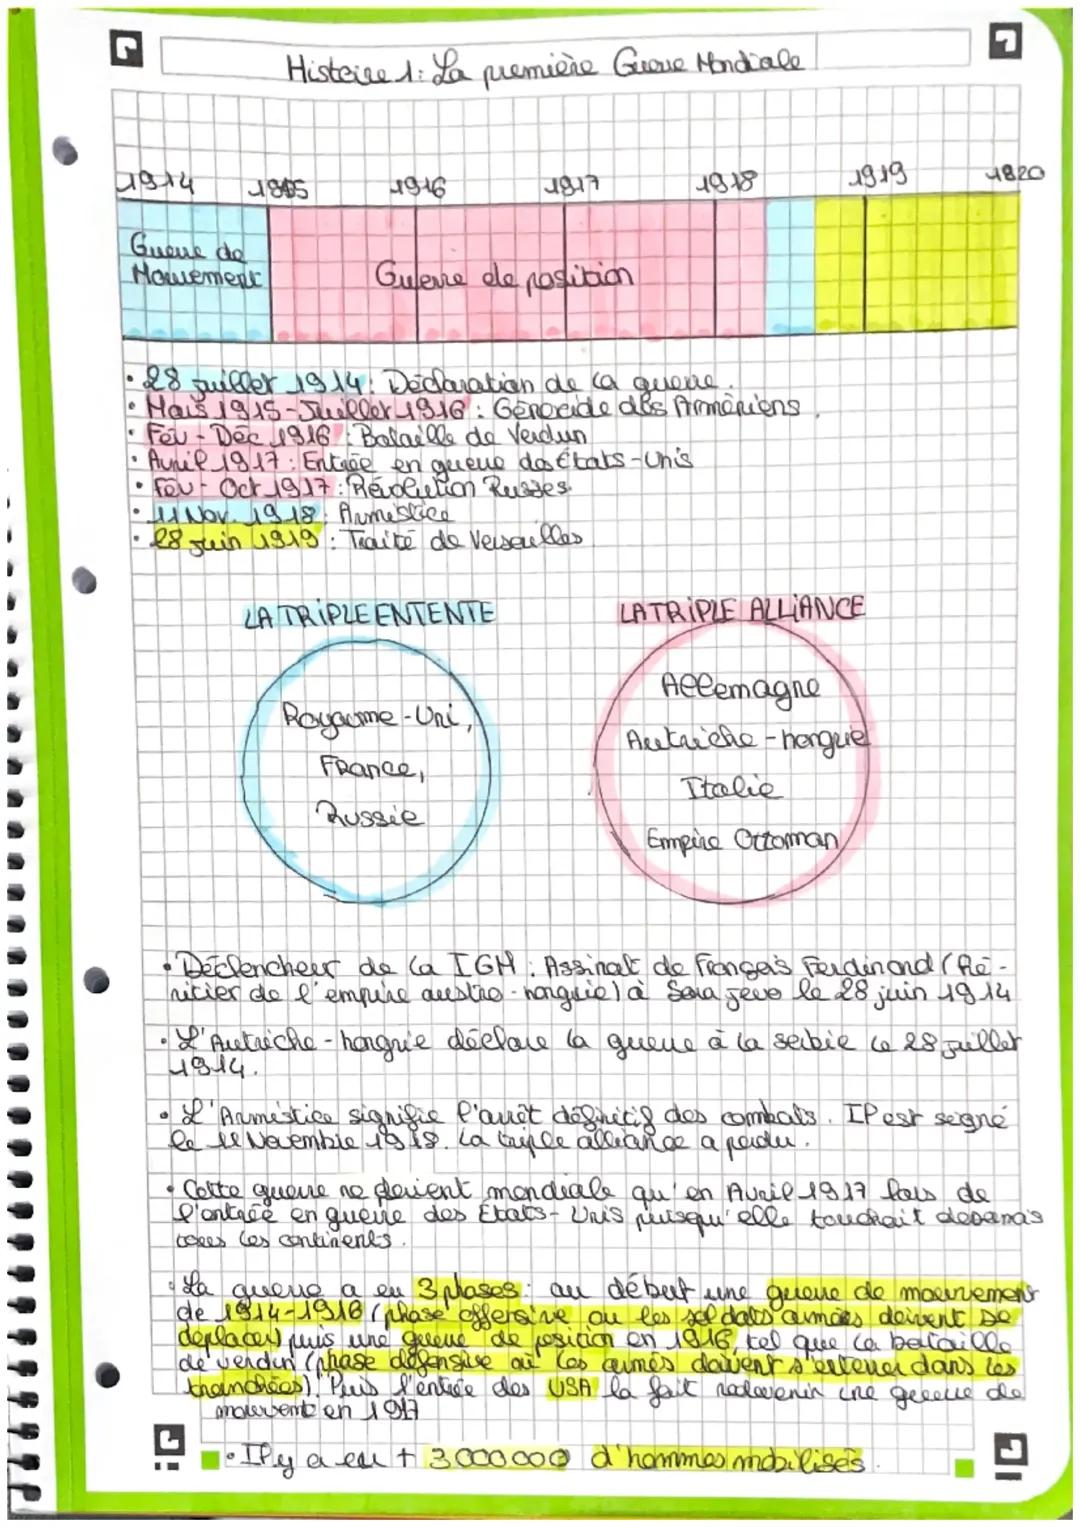 Histoire 1: La première Guerre Mondiale
1914 1915 1916 1917 1918 1919 1920
Guerre de
Mouvement
Guerre de position
• 28 juillet 1914: Déclaration de la guerre.
• Mars 1915-Juillet 1916: Génocide des Arméniens.
• Fév - Dec 1916: Bataille de Verdun
• Avril 1917: Entrée en guerre des États-Unis
• Fev - Oct 1917: Révolution Russes.
• 11 Nov. 1918: Armistice
• 28 juin 1919: Traité de Versailles
LA TRIPLE ENTENTE
LA TRIPLE ALLiANCE
Royaume-Uni,
France,
Russie
Allemagne
Autriche-hongrie
Italie
Empire Ottoman
• Déclencheur de la IGM: Assinat de François Ferdinand (Hé-
ritier de l'empire austro-hongrie) à Sarajevo le 28 juin 1914
• L'Autriche-hongrie déclare la guerre à la serbie le 28 juillet
1914.
• L'Armistice signifie l'arrêt définitif des combats. Il est segné
le 11 Novembre 1918. La triple alliance a perdu.
• Cette guerre ne devient mondiale qu'en Avril 1917 lors de
l'entrée en guerre des Etats-Unis puisqu'elle touchait desormais
tous les continents.
• La guerre a eu 3 phases: au début une guerre de mouvement
de 1914-1916 (phase offensive ou les soldats armées doivent se
deplacer) puis une guerre de position en 1916, tel que la bataille
de verdun (phase défensive où les armés doivent s'enterrer dans les
tranchées). Puis l'entrée des USA la fait redevenir une guerre de
mouvement en 1917
• Il y a eu + 3 000 000 d'hommes mobilisés.